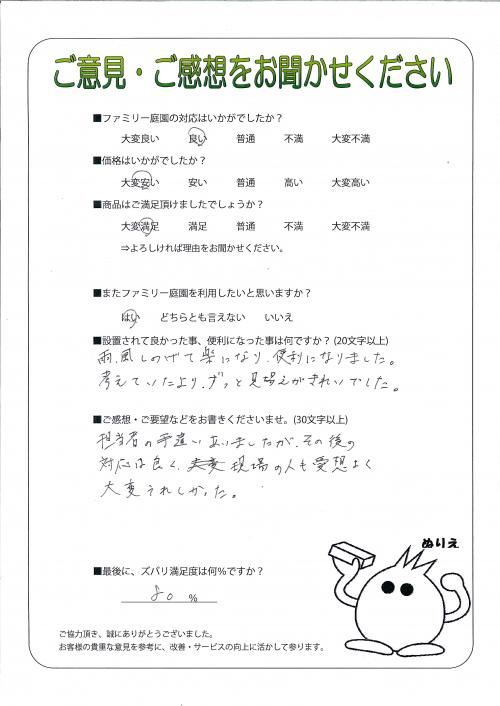 ご意見・ご感想をお聞かせください
■ファミリー庭園の対応はいかがでしたか？
大変良い 良い 普通 不満 大変不満
■価格はいかがでしたか？
大変安い 安い 普通 高い 大変高い
■商品はご満足頂けましたでしょうか？
大変満足 満足 普通 不満 大変不満
⇒よろしければ理由をお聞かせください。
■またファミリー庭園を利用したいと思いますか？
はい どちらとも言えない いいえ
■設置されて良かった事、便利になった事は何ですか？(20文字以上)
雨、風しのげて楽になり、便利になりました。
考えていたより、ずっと見場えがきれいでした。
■ご感想・ご要望などをお書きくださいませ。(30文字以上)
担当者の手違いありましたが、その後の
対応は良く、現場の人も愛想よく
大変うれしかった。
ぬりえ
■最後に、ズバリ満足度は何％ですか？
80 %
ご協力頂き、誠にありがとうございました。
お客様の貴重な意見を参考に、改善・サービスの向上に活かして参ります。